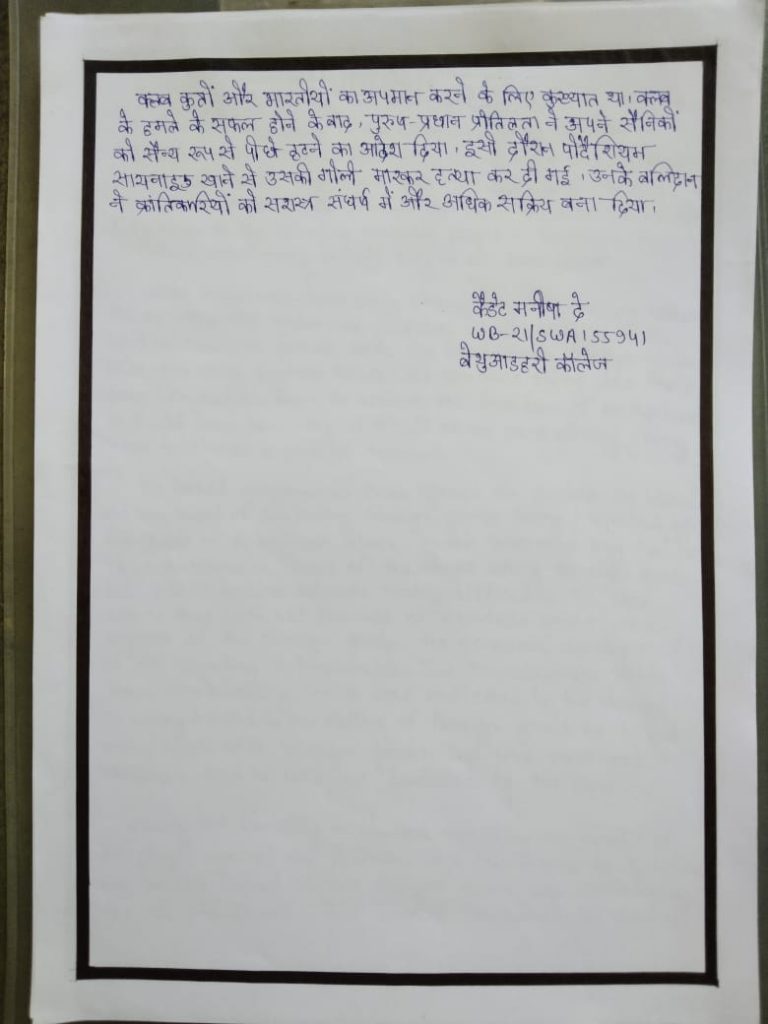 क्लब कुतों और भारतीयों का अपमान करने के लिए कुख्यात था। क्लब
के हमले के सफल होने के बाद, पुरुष-प्रधान प्रीतिलता ने अपने सैनिकों
को सैन्य रूप से पीछे हटने का आदेश दिया। इसी दौरान पोटैशियम
सायनाइड खाने से उसकी गोली मारकर हत्या कर दी गई। उनके बलिदान
ने क्रांतिकारियों को सशस्त्र संघर्ष में और अधिक सक्रिय बना दिया।
कैडेट मनीषा दे
WB-21/SWA155941
बेथुआडहरी कॉलेज